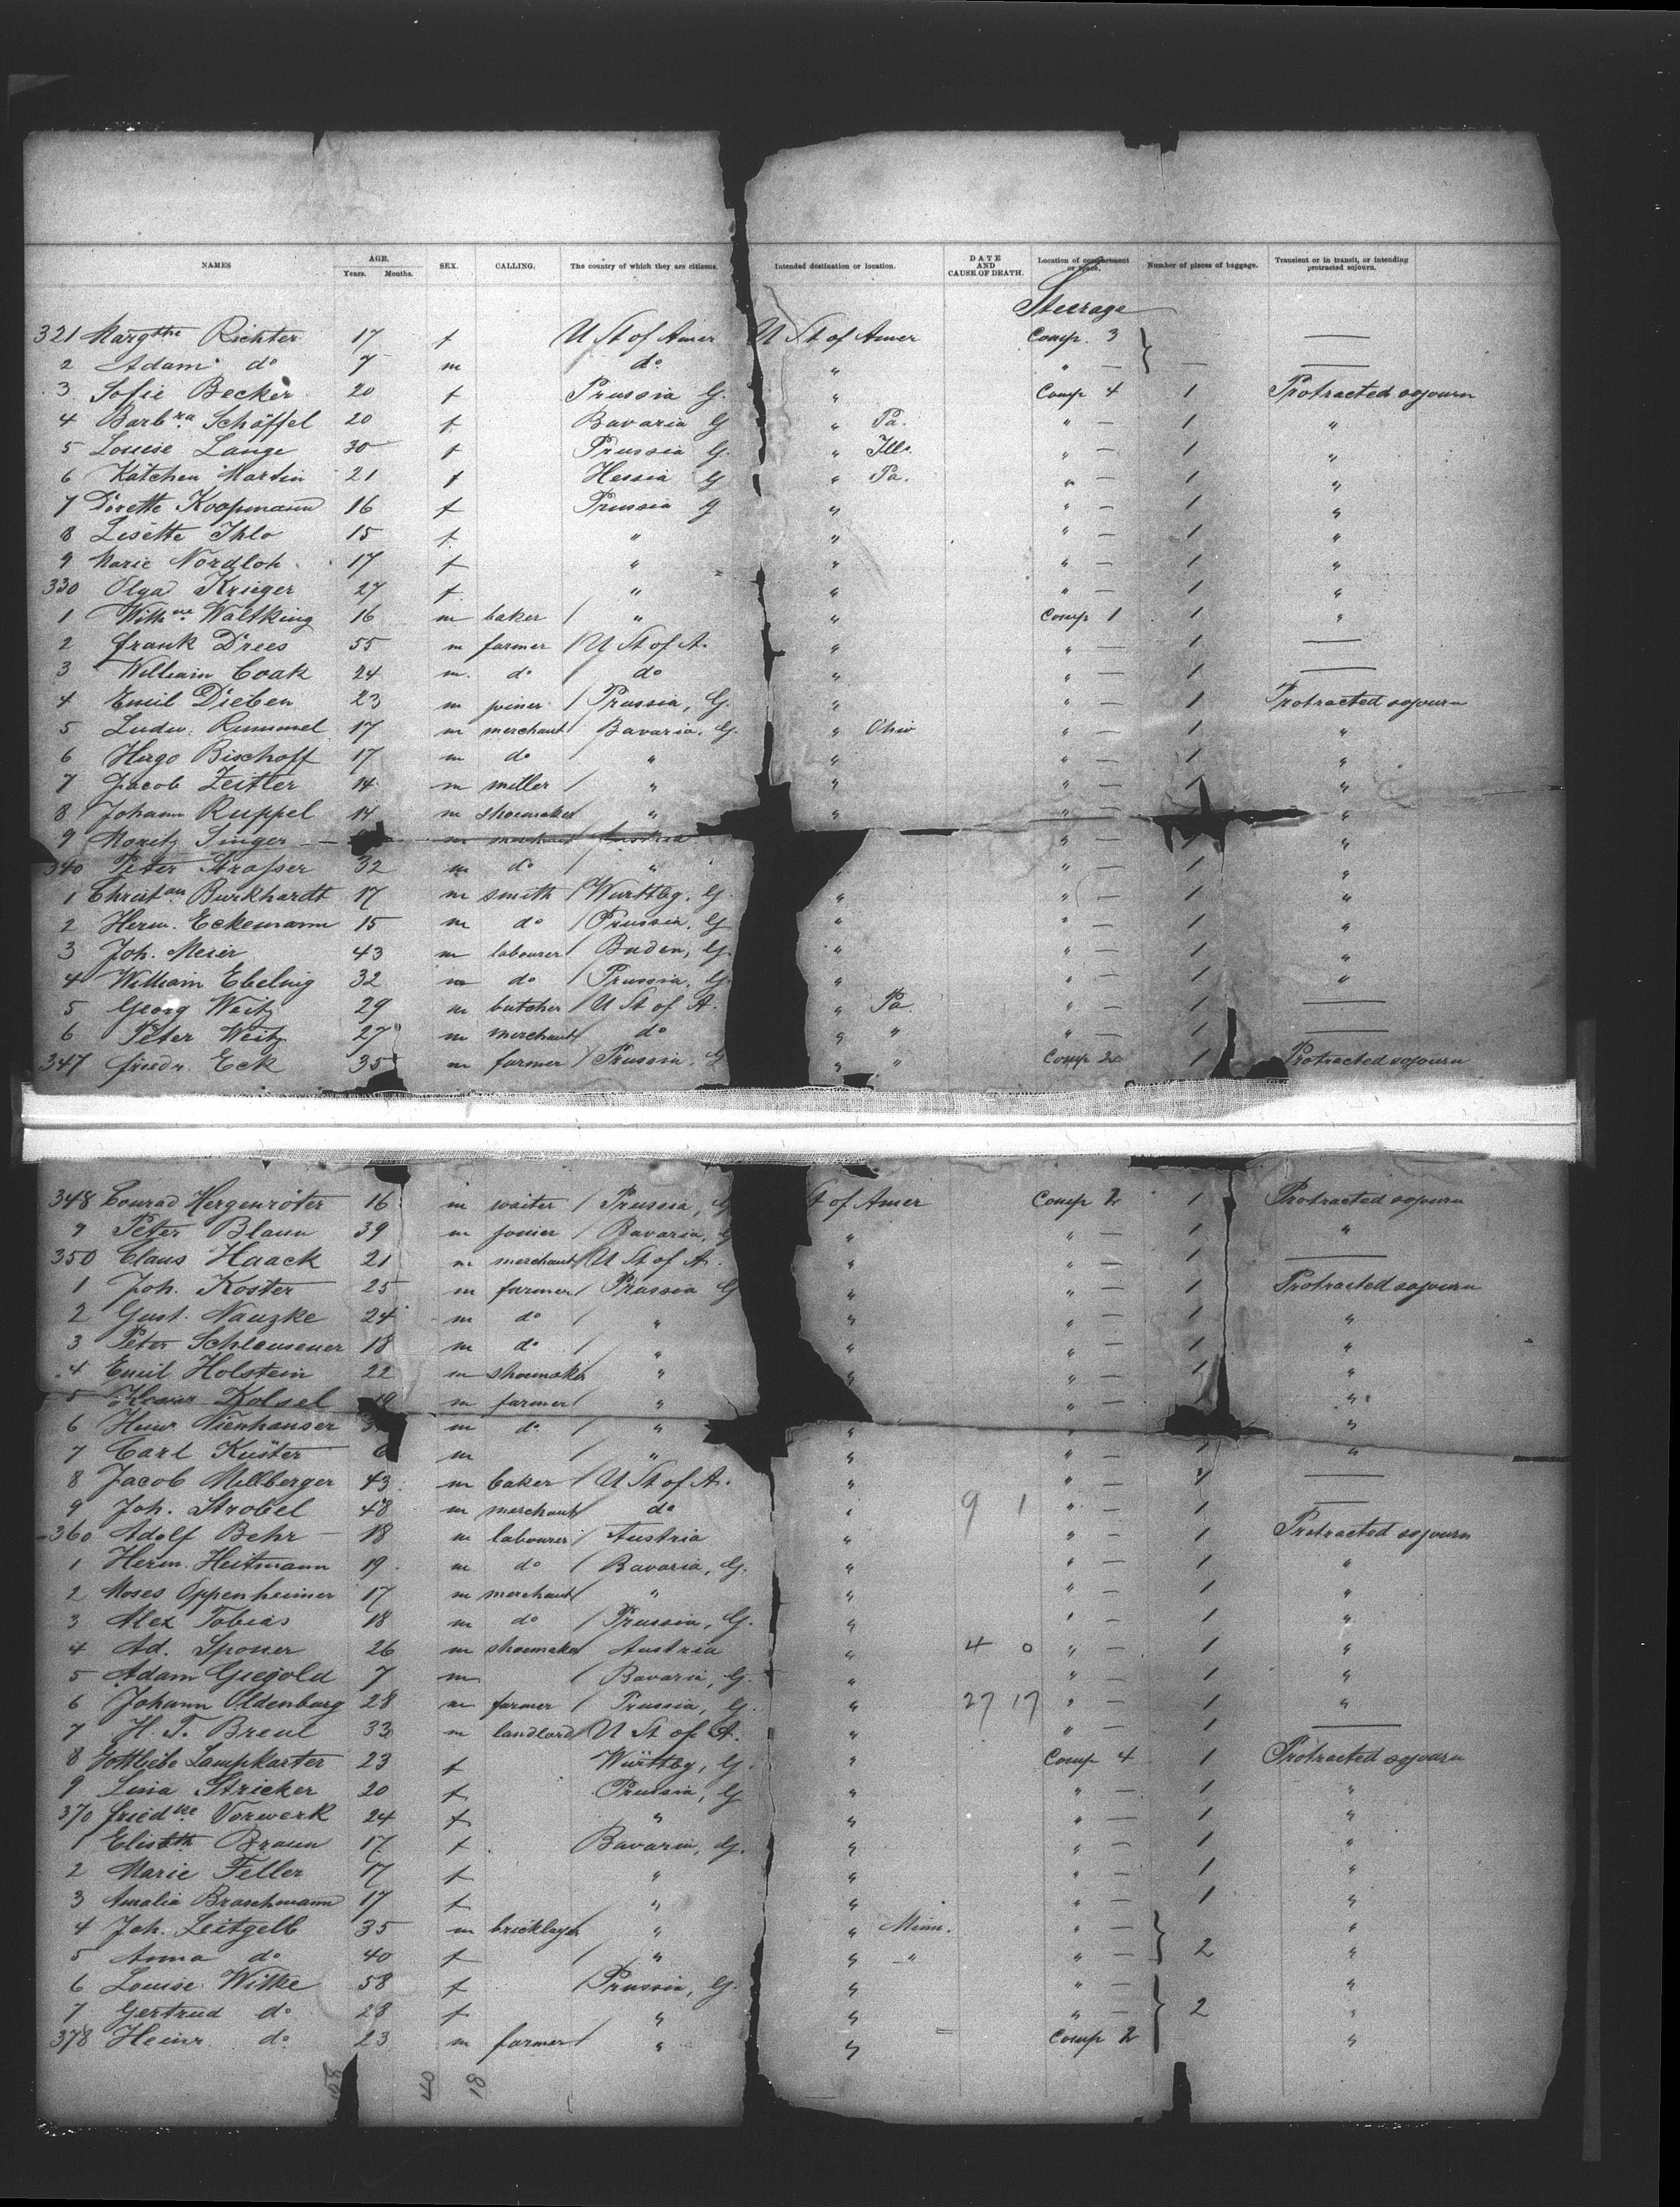 NAMES AGE. Years. Months. SEX. CALLING. The country of which they are citizens. Intended destination or location. DATE AND CAUSE OF DEATH. Location of compartment or space. Number of pieces of baggage. Transient or in transit, or intending protracted sojourn.
Steerage
321 Margthe Richter 17 f U St of Amer U St of Amer Comp. 3 —
2 Adam do 7 m do " " — — —
3 Sofie Becker 20 f Prussia G. " Comp 4 1 Protracted sojourn
4 Barbra Schäffel 20 f Bavaria G " Pa. " — 1 "
5 Louise Lange 30 f Prussia G. " Ills. " — 1 "
6 Kätchen Martin 21 f Hessia G " Pa. " — 1 "
7 Dorette Koopmann 16 f Prussia G " " — 1 "
8 Lisette Ihlo 15 f. " " " — 1 "
9 Marie Nordloh 17 f " " " — 1 "
330 Olga Krieger 27 f. " " " — 1 "
1 Waltking 16 m baker / " " Comp 1 1 "
2 Frank Drees 55 m farmer / U St of A. " " — 1 —
3 William Coak 24 m. do do " " — 1 —
4 Emil Dieben 23 m joiner / Prussia, G. " " — 1 Protracted sojourn
5 Ludw. Rummel 17 m merchant / Bavaria, G. " Ohio " — 1 "
6 Hugo Bischoff 17 m do / " " " — 1 "
7 Jacob Zeitler 14 m miller / " " " — 1 "
8 Johann Ruppel 14 m shoemaker " " " — 1 "
9 Moritz Singer — m merchant Austria " — 1 "
340 Peter Strasser 32 m do / " " — 1 "
1 Christian Burkhardt 17 m smith / Wurttbg. G. " " — 1 "
2 Herm. Eckemann 15 m do / Prussia, G " " — 1 "
3 Joh. Meier 43 m labourer / Baden, G. " " — 1 "
4 William Ebeling 32 m do / Prussia, G. " " — 1 "
5 Georg Weitz 29 m butcher / U St of A. " Pa " — 1 —
6 Peter Weitz 27 m merchant do " " " — 1 —
347 Friedr. Eck 35 m farmer / Prussia, G " " Comp 2 1 Protracted sojourn
348 Conrad Hergenröter 16 m waiter / Prussia, G t of Amer Comp 2 1 Protracted sojourn
9 Peter Blaun 39 m joiner / Bavaria, G " " — 1 "
350 Claus Haack 21 m merchant / U St of A. " " — 1 —
1 Joh. Koster 25 m farmer / Prussia G " " — 1 Protracted sojourn
2 Gust. Nauzke 24 m do / " " " — 1 "
3 Peter Schleusener 18 m do / " " " — 1 "
4 Emil Holstein 22 m shoemaker " " " — 1 "
5 Kolsel 19 m farmer / " " — "
6 Heinr Nienhauser m do / " " " "
7 Carl Küster 6 m / " " " — 1 "
8 Jacob Millberger 43 m baker / U St of A. " " — 1 —
9 Joh. Strobel 48 m merchant / do " 9 1 " — 1 —
360 Adolf Behr 18 m labourer / Austria " " — 1 Protracted sojourn
1 Herm. Heitmann 19 m do / Bavaria, G. " " — 1 "
2 Moses Oppenheimer 17 m merchant / " " " — 1 "
3 Alex Tobias 18 m do / Prussia, G. " " — 1 "
4 Ad. Sponer 26 m shoemaker Austria " 4 0 " — 1 "
5 Adam Giegold 7 m / Bavaria, G. " " — 1 "
6 Johann Oldenburg 28 m farmer / Prussia, G. " 27 17 " — 1 "
7 H. T. Breul 33 m landlord / U St of A. " " — 1 —
8 Gottliebe Lampkarter 23 f Württbg, G. " Comp 4 1 Protracted sojourn
9 Lina Stricker 20 f Prussia, G " " — 1 "
370 Friedke Vorwerk 24 f " " " — 1 "
1 Elisbth Braun 17 f Bavaria, G. " " — 1 "
2 Marie Feller 17 f " " " — 1 "
3 Amalia Braschmann 17 f " " " — 1 "
4 Joh. Leitgelb 35 m bricklayer " " Minn. " — "
5 Anna do 40 f / " " " " — 2 "
6 Louise Witke 58 f / Prussia, G. " " — "
7 Gertrud do 28 f " " " — 2 "
378 Heinr. do 23 m farmer / " " Comp 2 "
40 18